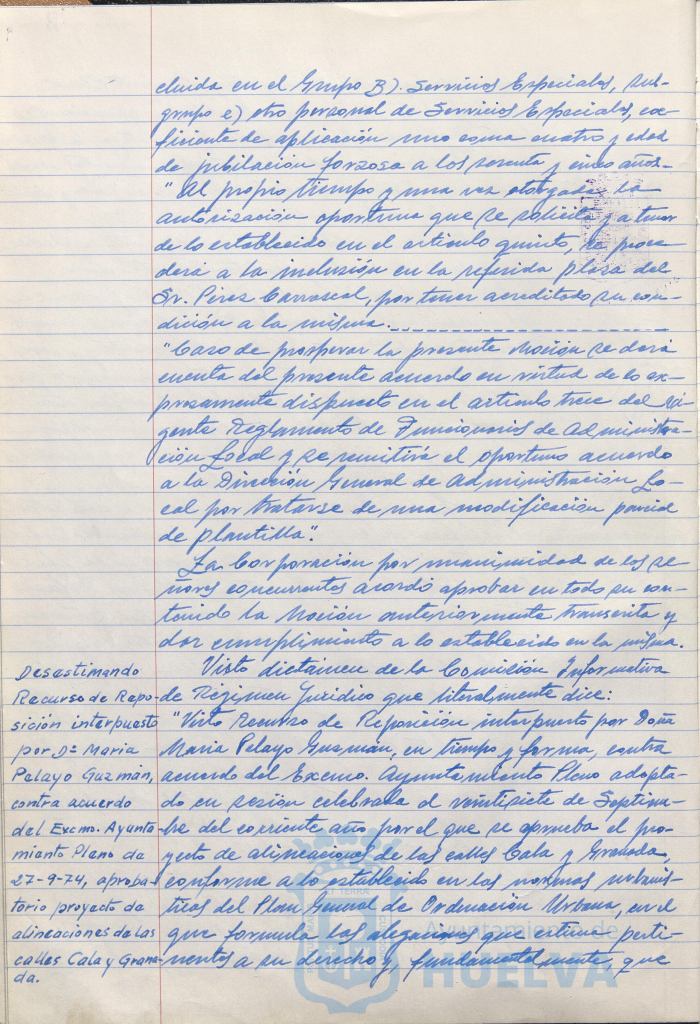 cluida en el Grupo B). Servicios Especiales, sub-
grupo e) otro personal de Servicios Especiales, coe-
ficiente de aplicación uno coma cuatro y edad
de jubilación forzosa a los sesenta y cinco años.-
"Al propio tiempo y una vez otorgada la
autorización oportuna que se solicita y a tenor
de lo establecido en el artículo quinto, se proce-
derá a la inclusión en la referida plaza del
Sr. Pérez Carrascal, por tener acreditado su con-
dición a la misma.
"Caso de prosperar la presente Moción se dará
cuenta del presente acuerdo en virtud de lo ex-
presamente dispuesto en el artículo trece del vi-
gente Reglamento de Funcionarios de Administra-
ción Local y se remitirá el oportuno acuerdo
a la Dirección General de Administración Lo-
cal por tratarse de una modificación parcial
de plantilla".
La Corporación por unanimidad de los se-
ñores concurrentes acordó aprobar en todo su con-
tenido la Moción anteriormente transcrita y
dar cumplimiento a lo establecido en la misma.
Desestimando
Recurso de Repo-
sición interpuesto
por Dª María
Pelayo Guzmán,
contra acuerdo
del Excmo. Ayunta-
miento Pleno de
27-9-74, aproba-
torio proyecto de
alineaciones de las
calles Cala y Grana-
da.
Visto dictamen de la Comisión Informativa
de Régimen Jurídico que literalmente dice:
"Visto Recurso de Reposición interpuesto por Doña
María Pelayo Guzmán, en tiempo y forma, contra
acuerdo del Excmo. Ayuntamiento Pleno adopta-
do en sesión celebrada el veintisiete de Septiem-
bre del corriente año por el que se aprueba el pro-
yecto de alineaciones de las calles Cala y Granada,
conforme a lo establecido en las normas urbanís-
ticas del Plan General de Ordenación Urbana, en el
que formula las alegaciones que estima perti-
nentes a su derecho y, fundamentalmente, que
Ayuntamiento de
HUELVA